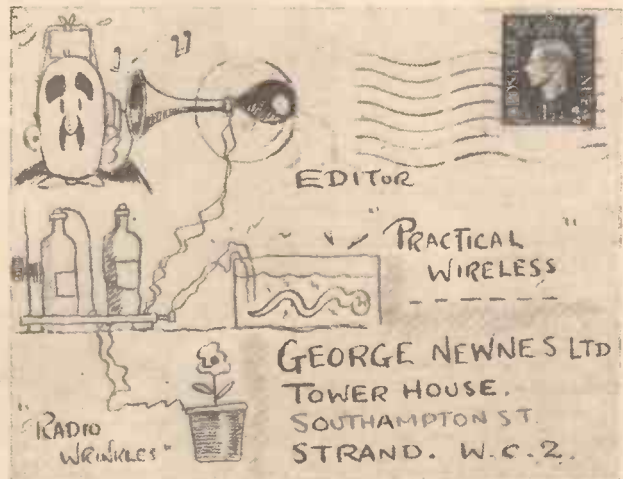 EDITOR
"PRACTICAL
WIRELESS"
GEORGE NEWNES LTD
TOWER HOUSE.
SOUTHAMPTON ST.
STRAND. W.C.2.
"RADIO
WRINKLES"